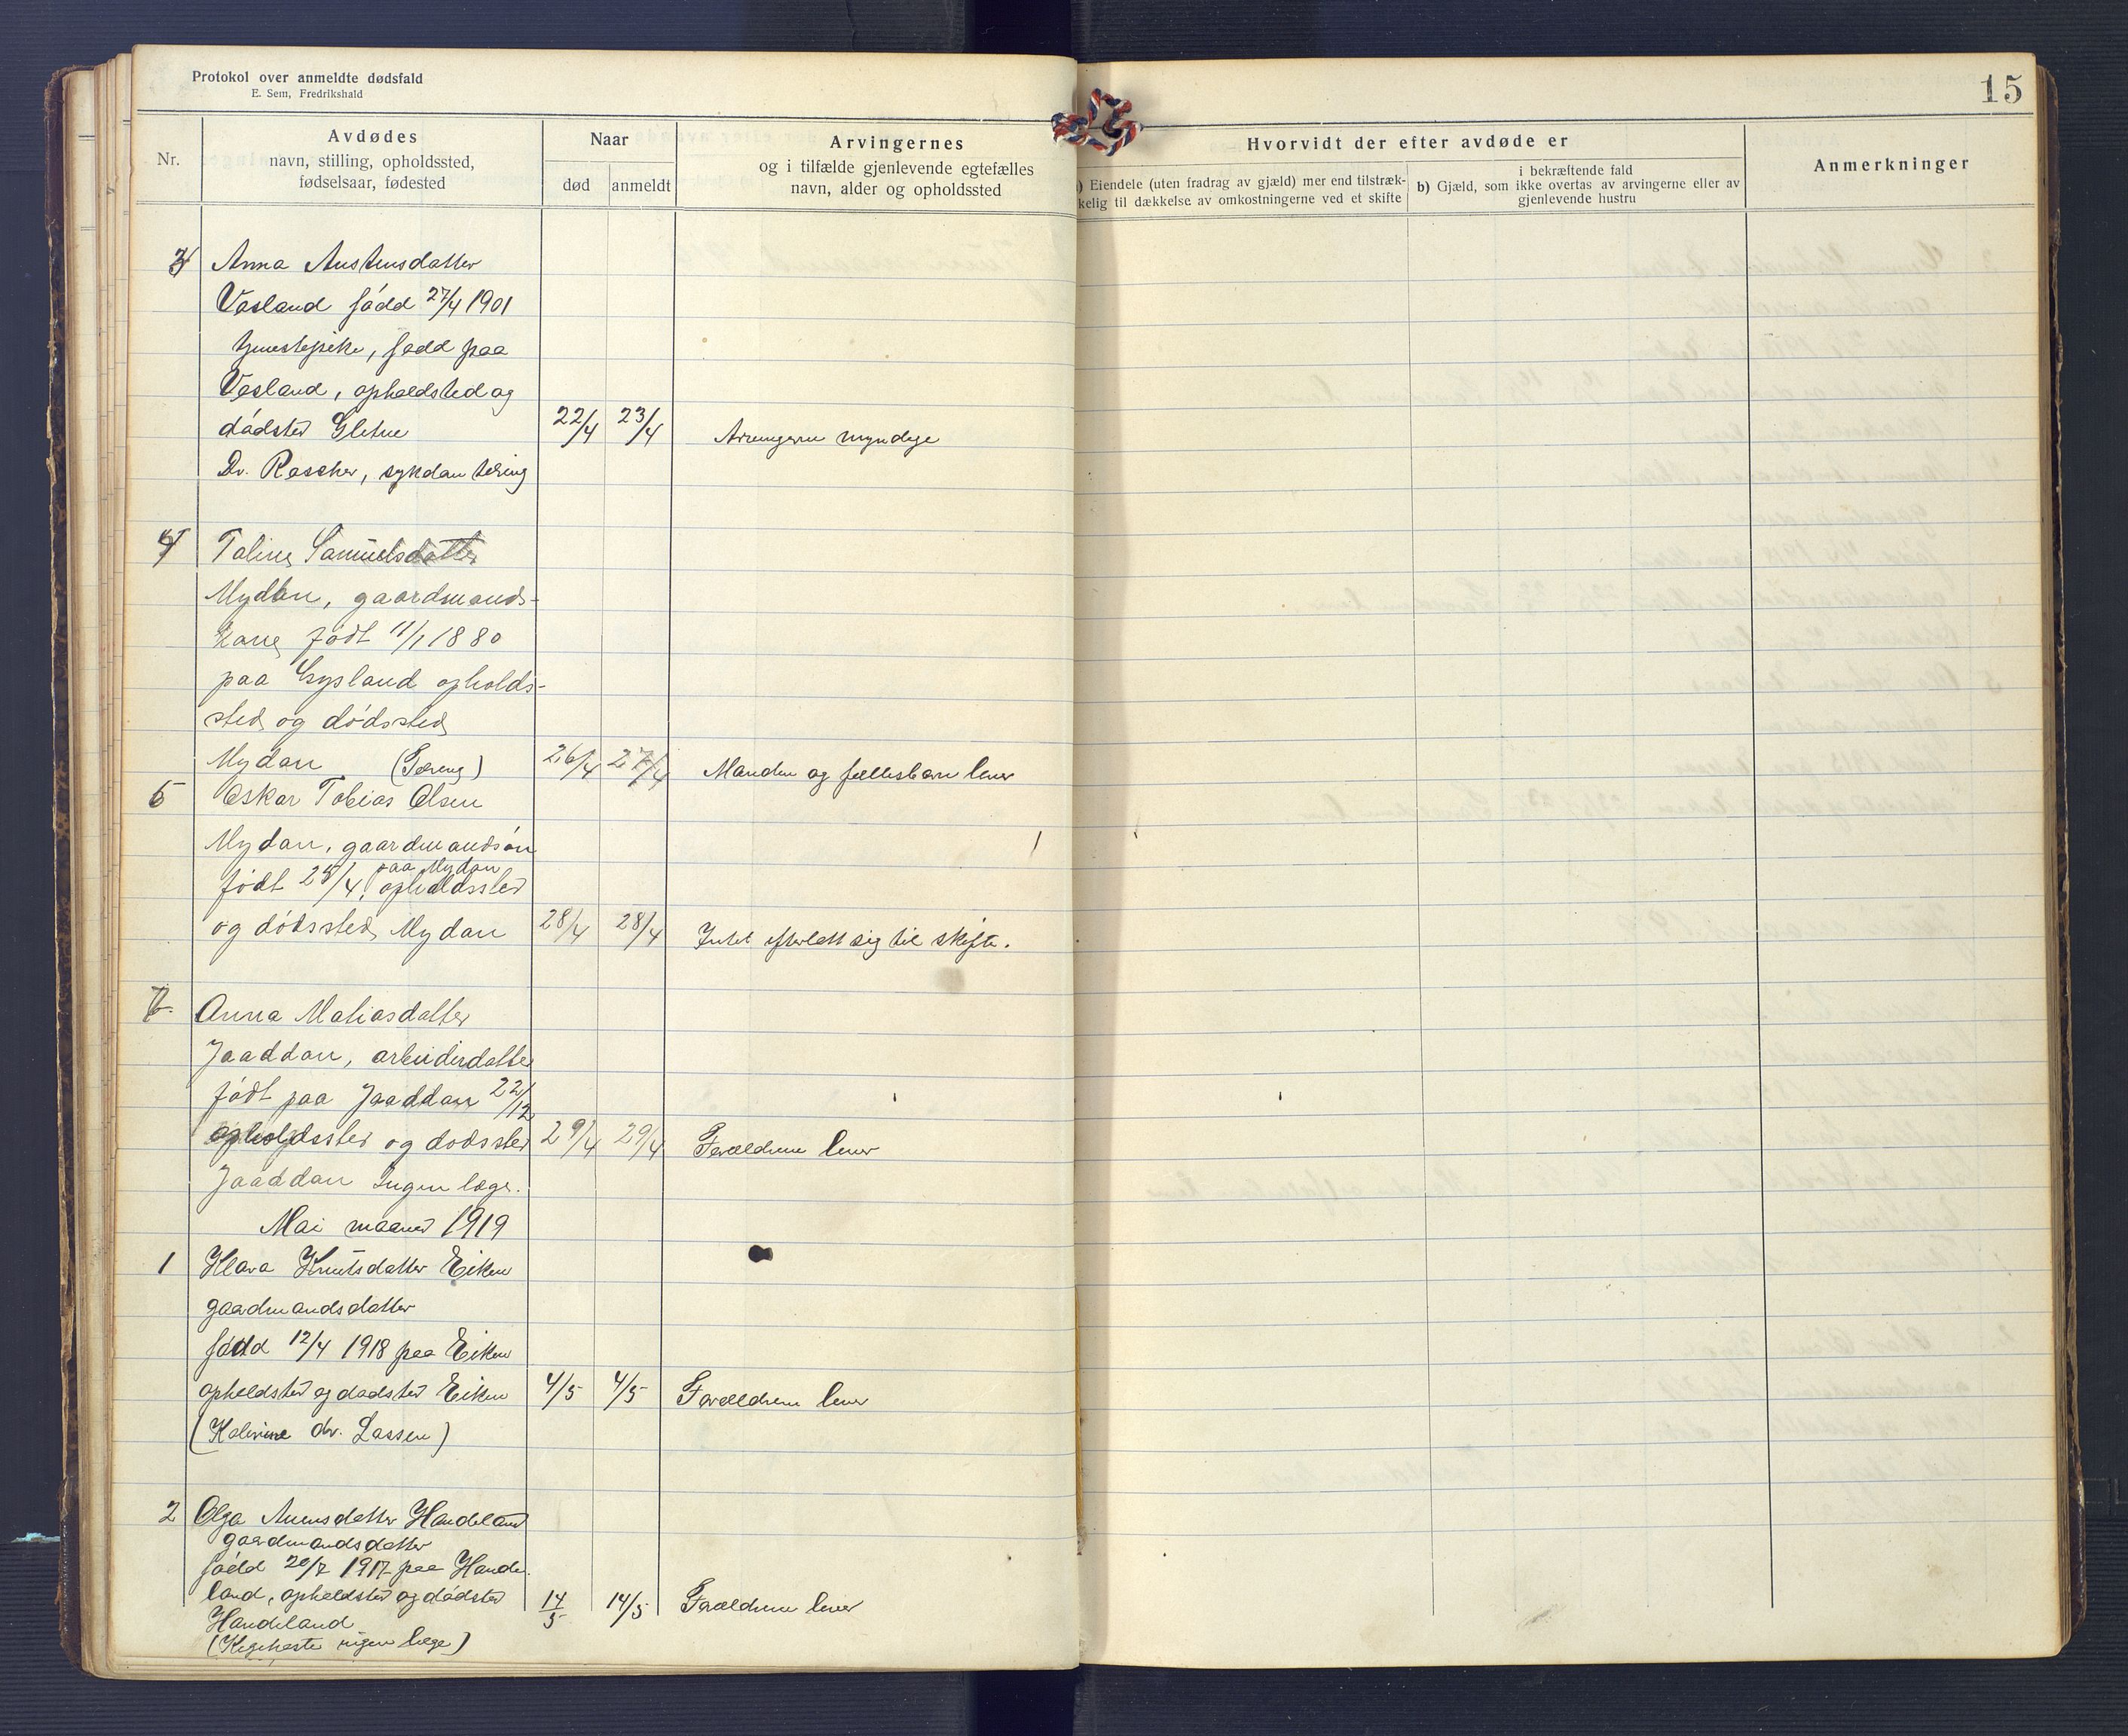 Protokol over anmeldte dødsfald
E. Sem, Fredrikshald
15
Nr.
Avdødes
navn, stilling, opholdssted,
fødselsaar, fødested
Naar
død
anmeldt
Arvingernes
og i tilfælde gjenlevende egtefælles
navn, alder og opholdssted
Hvorvidt der efter avdøde er
a) Eiendele (uten fradrag av gjæld) mer end tilstræk-
kelig til dækkelse av omkostningerne ved et skifte
i bekræftende fald
b) Gjæld, som ikke overtas av arvingerne eller av
gjenlevende hustru
Anmerkninger
3 Anna Austensdatter
Vasland född 27/4 1901
tjenestepike, född paa
Vasland, opholdsted og
dödsted 22/4 23/4 Arvingerne myndige
Dr. Rascher, sykdom tæring
4 Taline Samuelsdatter
Mydlan, gaardmands-
kone født 11/1 1880
paa Gysland opholds-
sted og dødssted
Mydan (Tæring) 26/4 27/4 Manden og fællesbarn lever
5 Oskar Tobias Olsen
Mydan, gaardmandsøn
født 25/4 paa Mydan, opholdssted
og dødssted Mydan 28/4 28/4 Intet efterlatt sig til skifte.
6. Anna Matiasdatter
Jaaddan, arbeiderdatter
født paa Jaaddan 22/12
opholdssted og dodssted 29/4 29/4 Forældrene lever
Jaaddan Ingen læge.
Mai maaned 1919
1 Klara Knutsdatter Eiken
gaardmandsdatter
född 12/4 1918 paa Eiken
opholdsted og dødsted Eiken 4/5 4/5 Forældrene lever
(dr. Lassen)
2 Olga Handeland
gaardmandsdatter
född 20/7 1917 paa Hande
land, opholdsted og dødsted 14/5 14/5 Forældrene lever
Handeland
(Kighoste ingen læge)